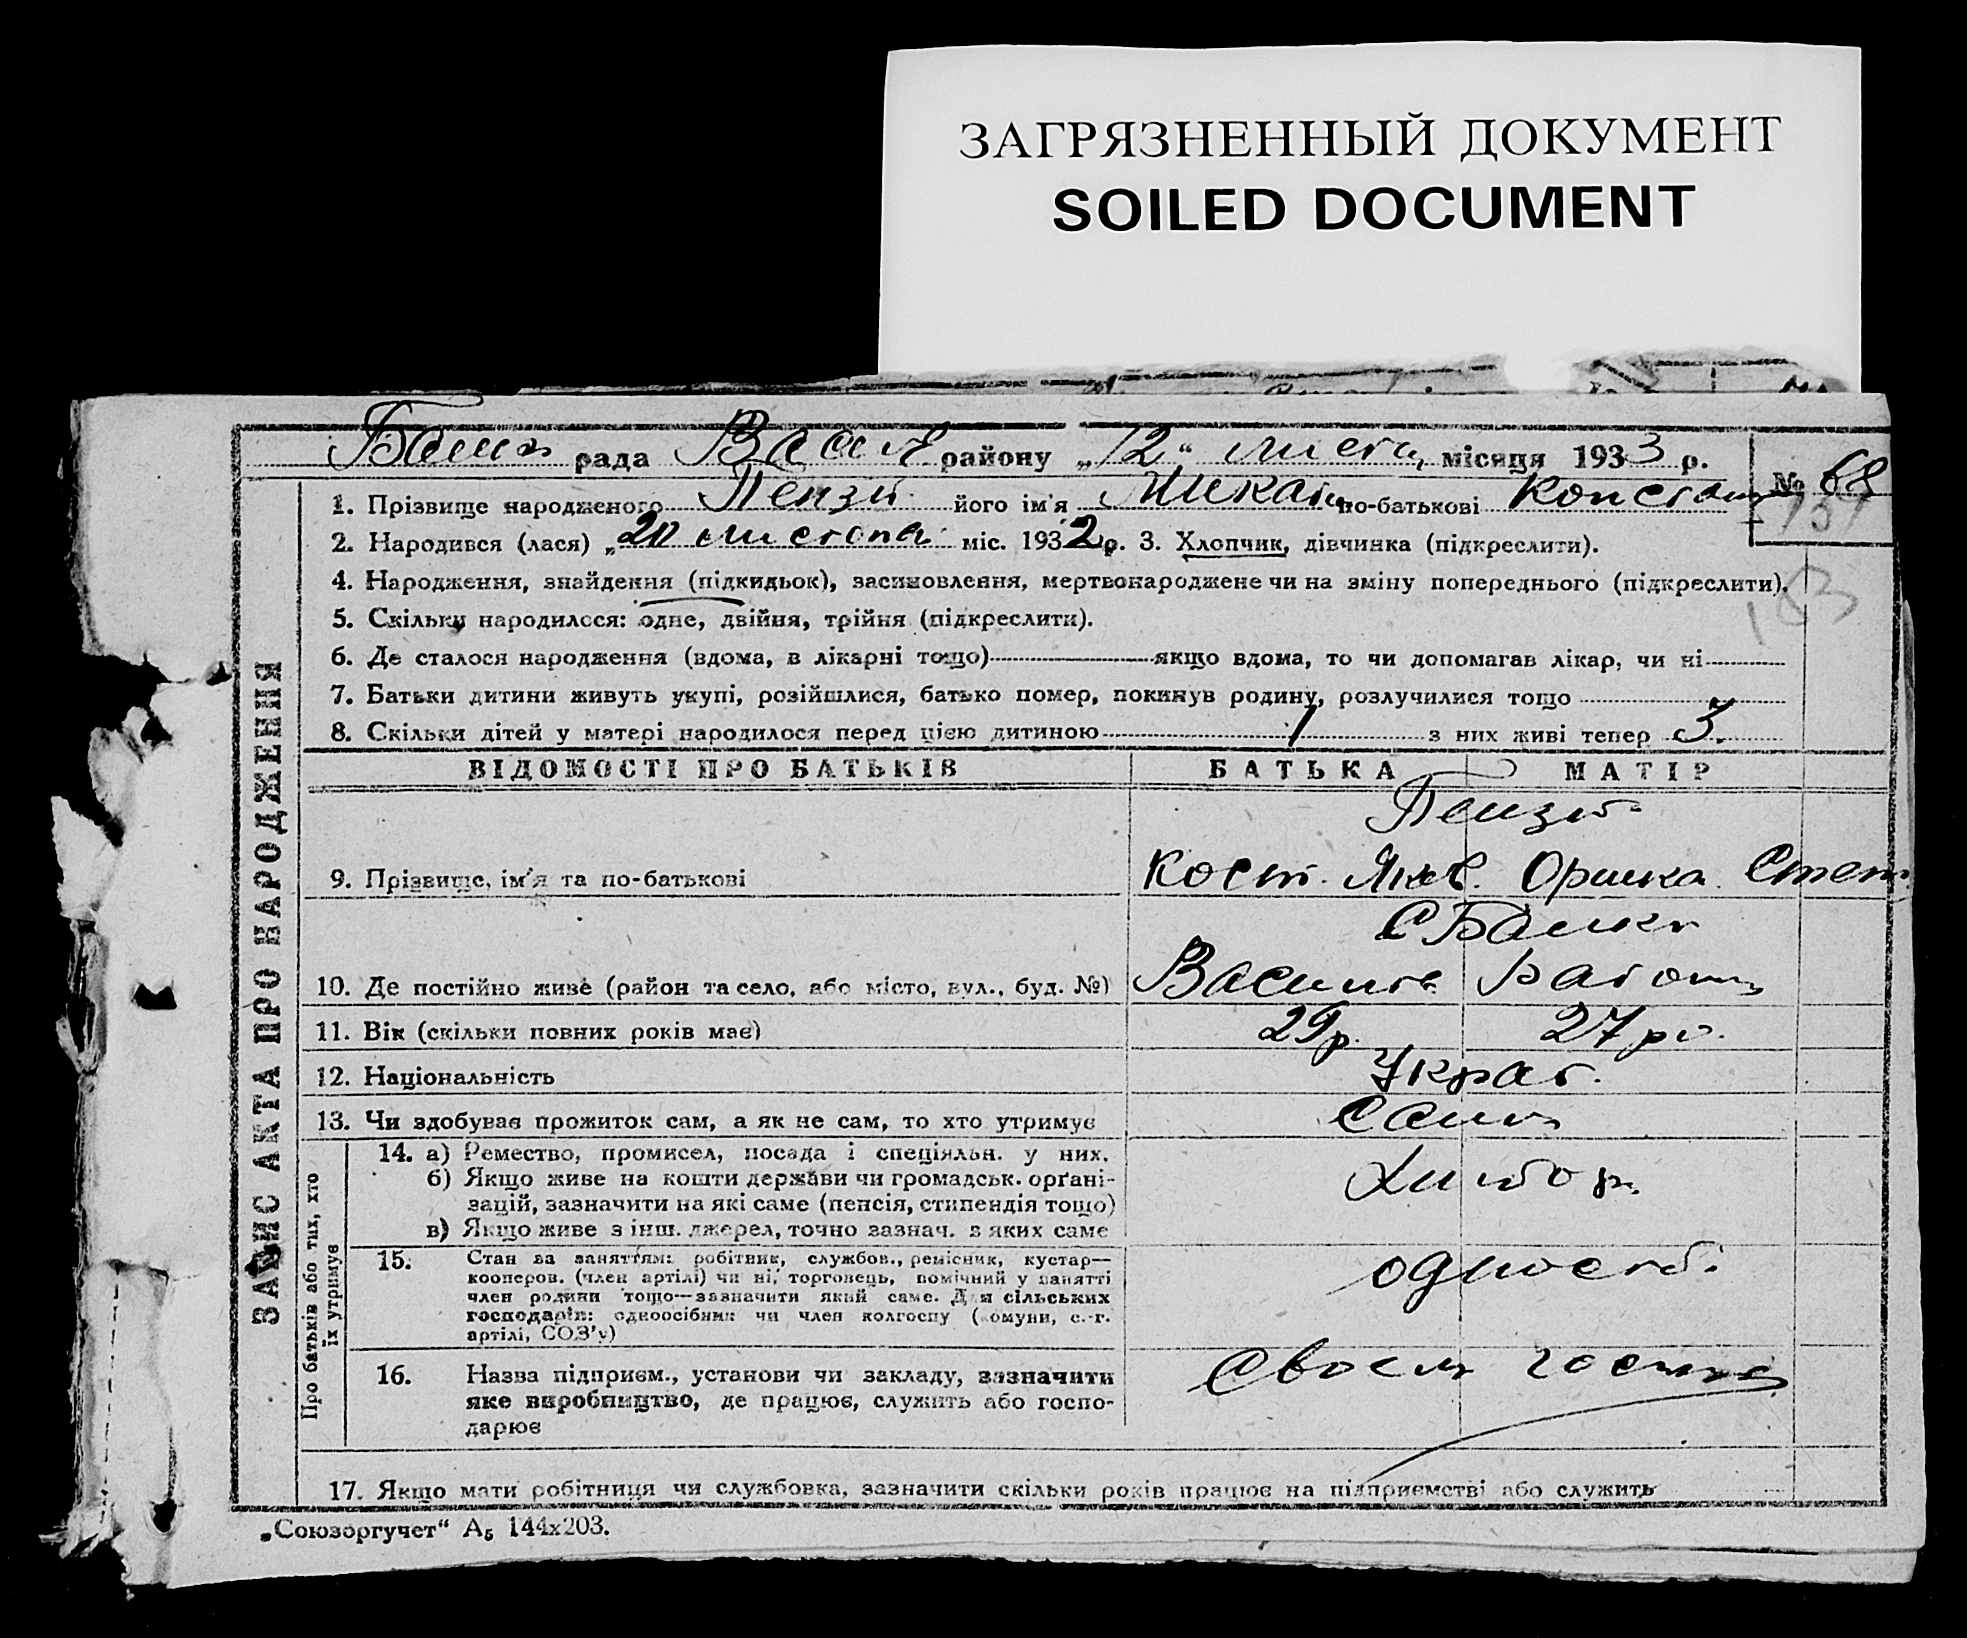 ЗАГРЯЗНЕННЫЙ ДОКУМЕНТ
SOILED DOCUMENT
рада району „12“ міcяця 1933 р. № 68
1. Прізвище народженого його ім'я по-батькові
2. Народився (лася) „20 листопа міс. 1932 р. 3. Хлопчик, дівчинка (підкреслити).
4. Народження, знайдення (підкидьок), засиновлення, мертвонароджене чи на зміну попереднього (підкреслити).
5. Скільки народилося: одне, двійня, трійня (підкреслити).
6. Де сталося народження (вдома, в лікарні тощо) якщо вдома, то чи допомагав лікар, чи ні
7. Батьки дитини живуть укупі, розійшлися, батько помер, покинув родину, розлучилися тощо
8. Скільки дітей у матері народилося перед цією дитиною 1 з них живі тепер 3.
ЗАПИС АКТА ПРО НАРОДЖЕННЯ
ВІДОМОСТІ ПРО БАТЬКІВ БАТЬКА МАТІР
9. Прізвище, ім'я та по-батькові Кост. Яков.
10. Де постійно живе (район та село, або місто, вул., буд. №)
11. Вік (скільки повних років має) 29р. 27 ро.
12. Національність Украї.
13. Чи здобуває прожиток сам, а як не сам, то хто утримує
Про батьків або тих, хто
їх утримує
14. а) Ремество, промисел, посада і спеціяльн. у них.
б) Якщо живе на кошти держави чи громадськ. орґані-
зацій, зазначити на які саме (пенсія, стипендія тощо)
в) Якщо живе з інш. джерел, точно зазнач. з яких саме
15. Стан за заняттям: робітник, службов., ремісник, кустар—
кооперов. (член артілі) чи ні, торговець, помічний у занятті
член родини тощо—зазначити який саме. Для сільських
господарів: одноосібник чи член колгоспу (комуни, с.-г.
артілі, СОЗ'у)
16. Назва підприєм., установи чи закладу, зазначити
яке виробництво, де працює, служить або госпо-
дарює
17. Якщо мати робітниця чи службовка, зазначити скільки років працює на підприємстві або служить
„Союзоргучет“ А₅ 144х203.